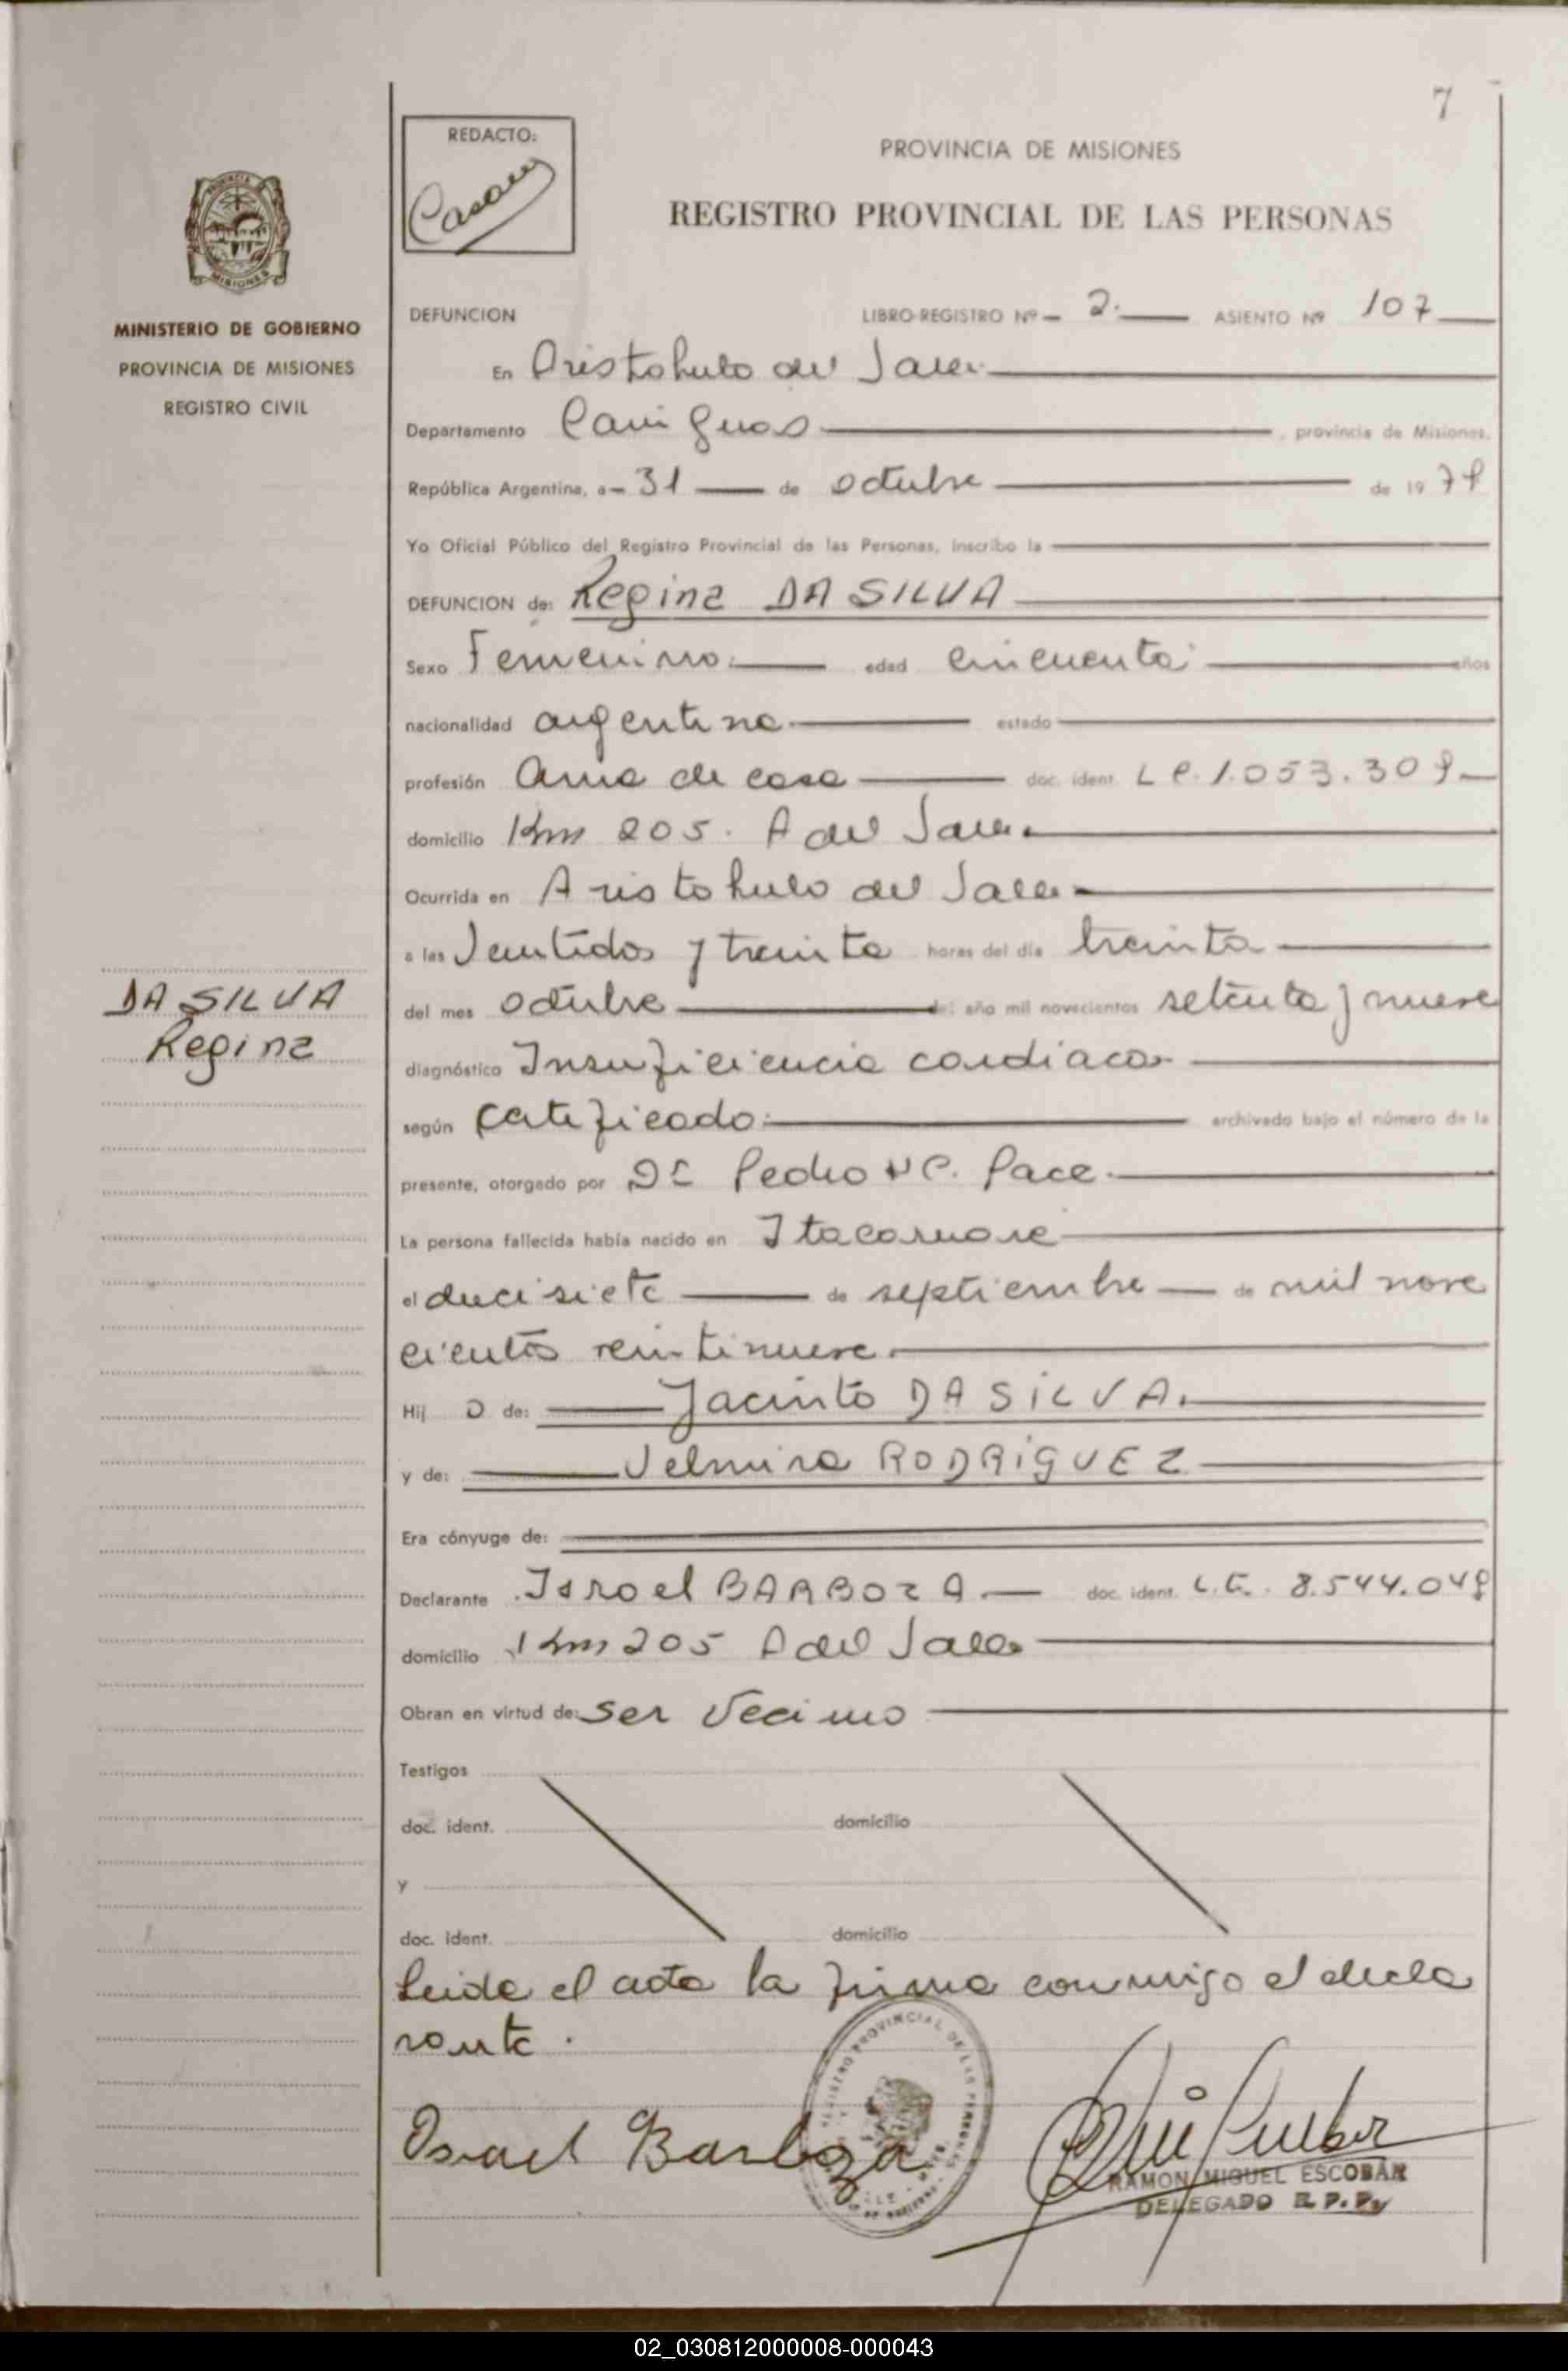 7
REDACTO:
PROVINCIA DE MISIONES
REGISTRO PROVINCIAL DE LAS PERSONAS
MINISTERIO DE GOBIERNO
PROVINCIA DE MISIONES
REGISTRO CIVIL
DEFUNCION LIBRO-REGISTRO Nº 2. ASIENTO Nº 107
En Aristobulo del Valle
Departamento Cainguas, provincia de Misiones,
República Argentina, a 31 de octubre de 1979
Yo Oficial Público del Registro Provincial de las Personas, inscribo la
DEFUNCION de: Regina DA SILVA
Sexo Femenino edad cincuenta años
nacionalidad argentina estado
profesión ama de casa doc. ident. L C. 1.053.309
domicilio Km 205. A del Valle
Ocurrida en Aristobulo del Valle
a las Veintidos y treinta horas del día treinta
del mes octubre del año mil novecientos setenta y nueve
DA SILVA
Regina
diagnóstico Insuficiencia cardiaca
según certificado archivado bajo el número de la
presente, otorgado por Dr Pedro N C. Pace.
La persona fallecida había nacido en Itacaruare
el diecisiete de septiembre de mil nove
cientos veintinueve.
Hij a de: Jacinto DA SILVA.
y de: Velmira RODRIGUEZ
Era cónyuge de:
Declarante Israel BARBOZA doc. ident. L.E. 8.544.049
domicilio Km 205 A del Valle
Obran en virtud de: ser vecino
Testigos
doc. ident. domicilio
y
doc. ident. domicilio
Leida el acta la firma conmigo el decla
rante.
REGISTRO PROVINCIAL DE LAS PERSONAS
Israel Barboza
RAMON MIGUEL ESCOBAR
DELEGADO R.P.P.
02_030812000008-000043